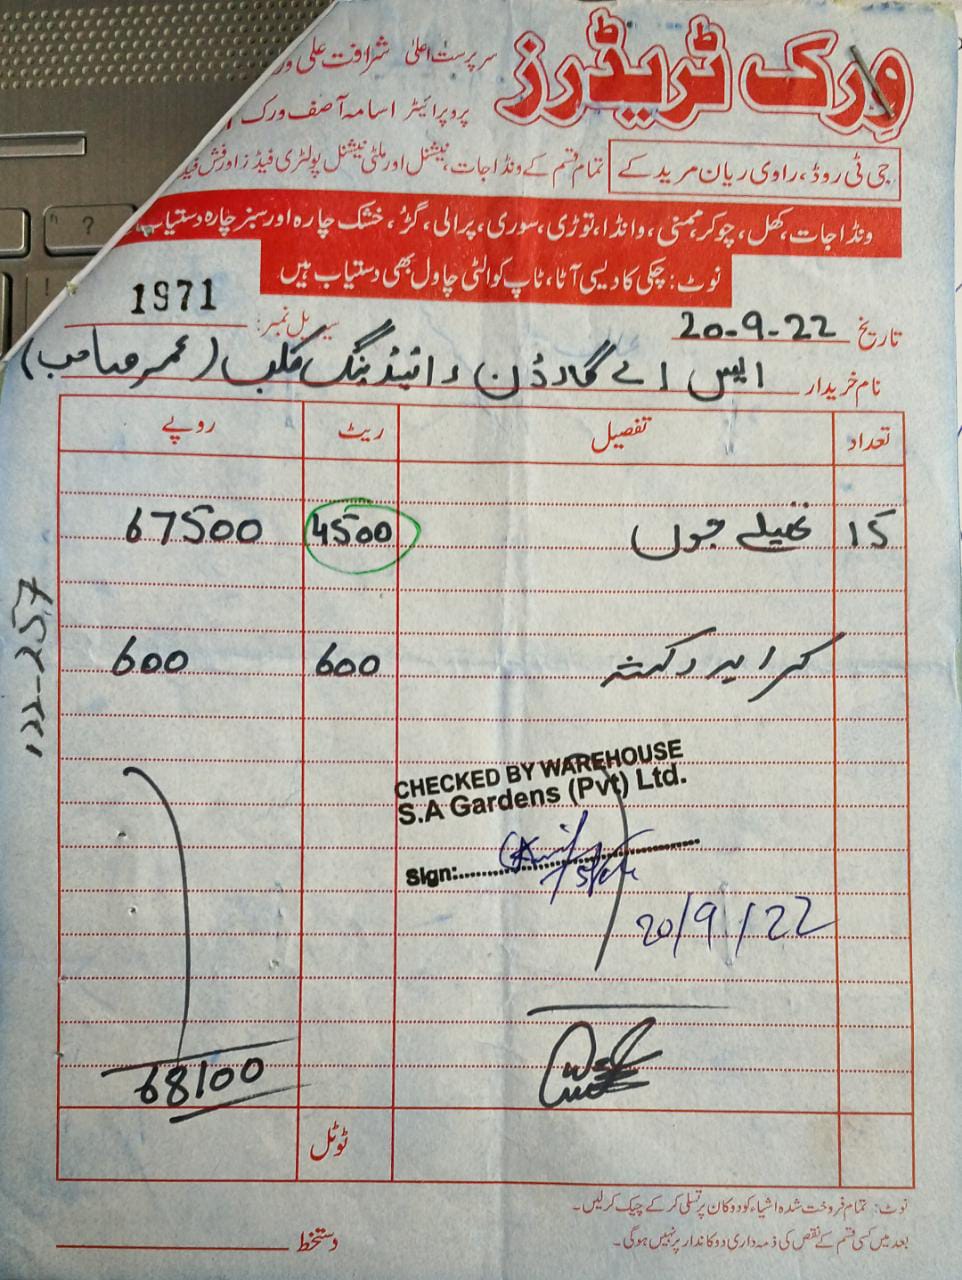 ورک ٹریڈرز
سرپرست اعلیٰ شرافت علی
پروپرائیٹر اسامہ آصف ورک
جی ٹی روڈ، راوی ریان مریدکے
تمام قسم کے ونڈا جات، نیشنل اور ملٹی نیشنل پولٹری فیڈز اور فش فیڈ
ونڈا جات، کھل، چوکر، مکئی، وانڈا، توڑی، سوری، پرالی، گڑ، خشک چارہ اور سبز چارہ دستیاب
نوٹ: چکی کا دیسی آٹا، ٹاپ کوالٹی چاول بھی دستیاب ہیں
تاریخ 20-9-22
سیریل نمبر: 1971
نام خریدار ایس اے گارڈن رائیڈنگ کلب (عمر صاحب)
تعداد تفصیل ریٹ روپے
15 تھیلے جوں 4500 67500
کرایہ رکشہ 600 600
122-257
CHECKED BY WAREHOUSE
S.A Gardens (Pvt) Ltd.
Sign:
20/9/22
68100
ٹوٹل
نوٹ: تمام فروخت شدہ اشیاء کو دوکان پر تسلی کر کے چیک کر لیں۔
بعد میں کسی قسم کے نقص کی ذمہ داری دوکاندار پر نہیں ہوگی۔
دستخط